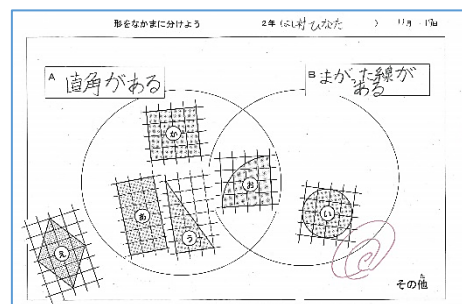 形をなかまに分けよう 2年 ( ひなた ) 11月 17日
A 直角がある
B まがった線が
ある
か
お
あ
う
い
え
その他
た